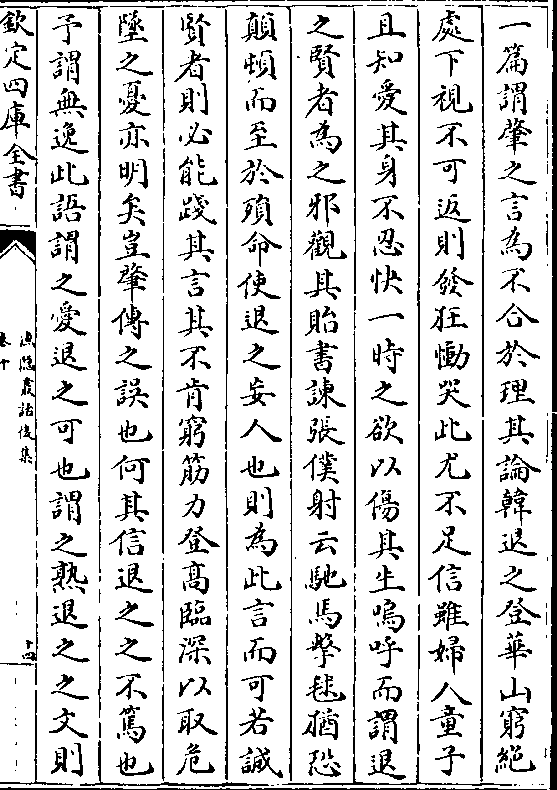 一篇謂肇之言為不合於理其論韓退之登華山窮絶
處下視不可返則發狂慟哭此尤不足信雖婦人童子
且知愛其身不忍快一時之欲以傷其生嗚呼而謂退
之賢者為之邪觀其貽書諫張僕射云馳馬擊毬猶恐
顛頓而至於殞命使退之妄人也則為此言而可若誠
賢者則必能踐其言其不肯窮筋力登高臨深以取危
墜之憂亦明矣豈肇傳之誤也何其信退之之不篤也
予謂無逸此語謂之愛退之可也謂之熟退之之文則
欽定四庫全書
漁隱叢話後集
卷十
十四